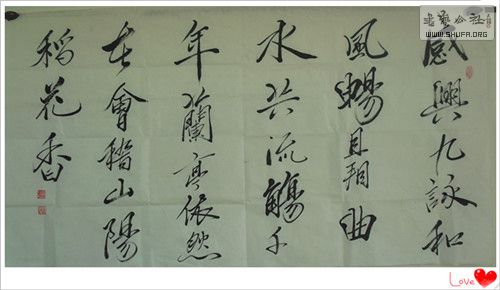 感興九詠和
風暢且翔曲
水共流觴千
年蘭亭依然
在會稽山陽
稻花香
书艺公社
WWW.SHUFA.ORG
Love